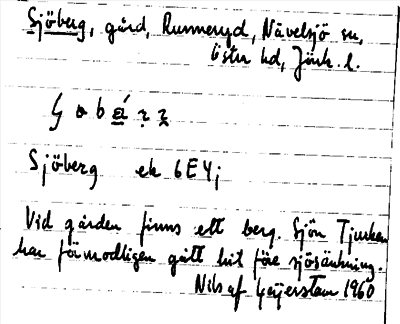 Sjöberg, gård, Runneryd, Nävelsjö sn,
Öster hd, Jönk. l.
Sjöberg ek 6E4;
Vid gården finns ett berg. Sjön Tjurken
har förmodligen gått hit före sjösänkning.
Nils af Geijerstam 1960